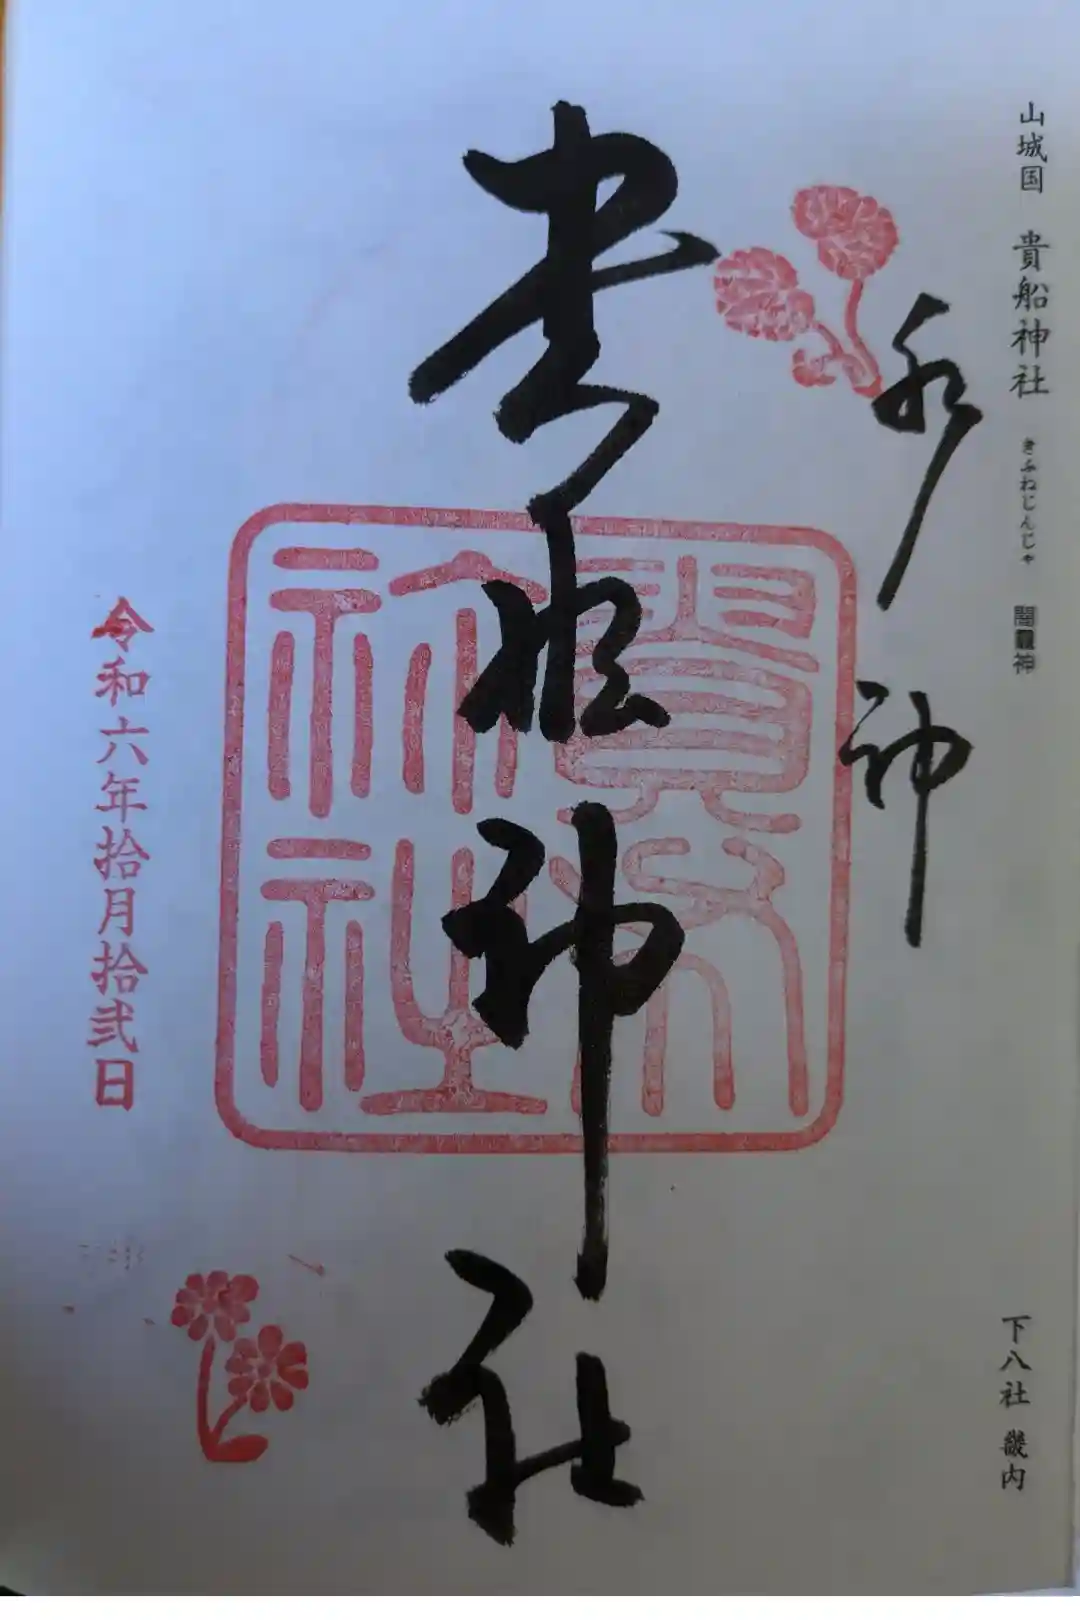 山城国 貴船神社 きふねじんじゃ 闇龗神
下八社 畿内
水神
貴船神社
貴布祢社
令和六年拾月拾弐日